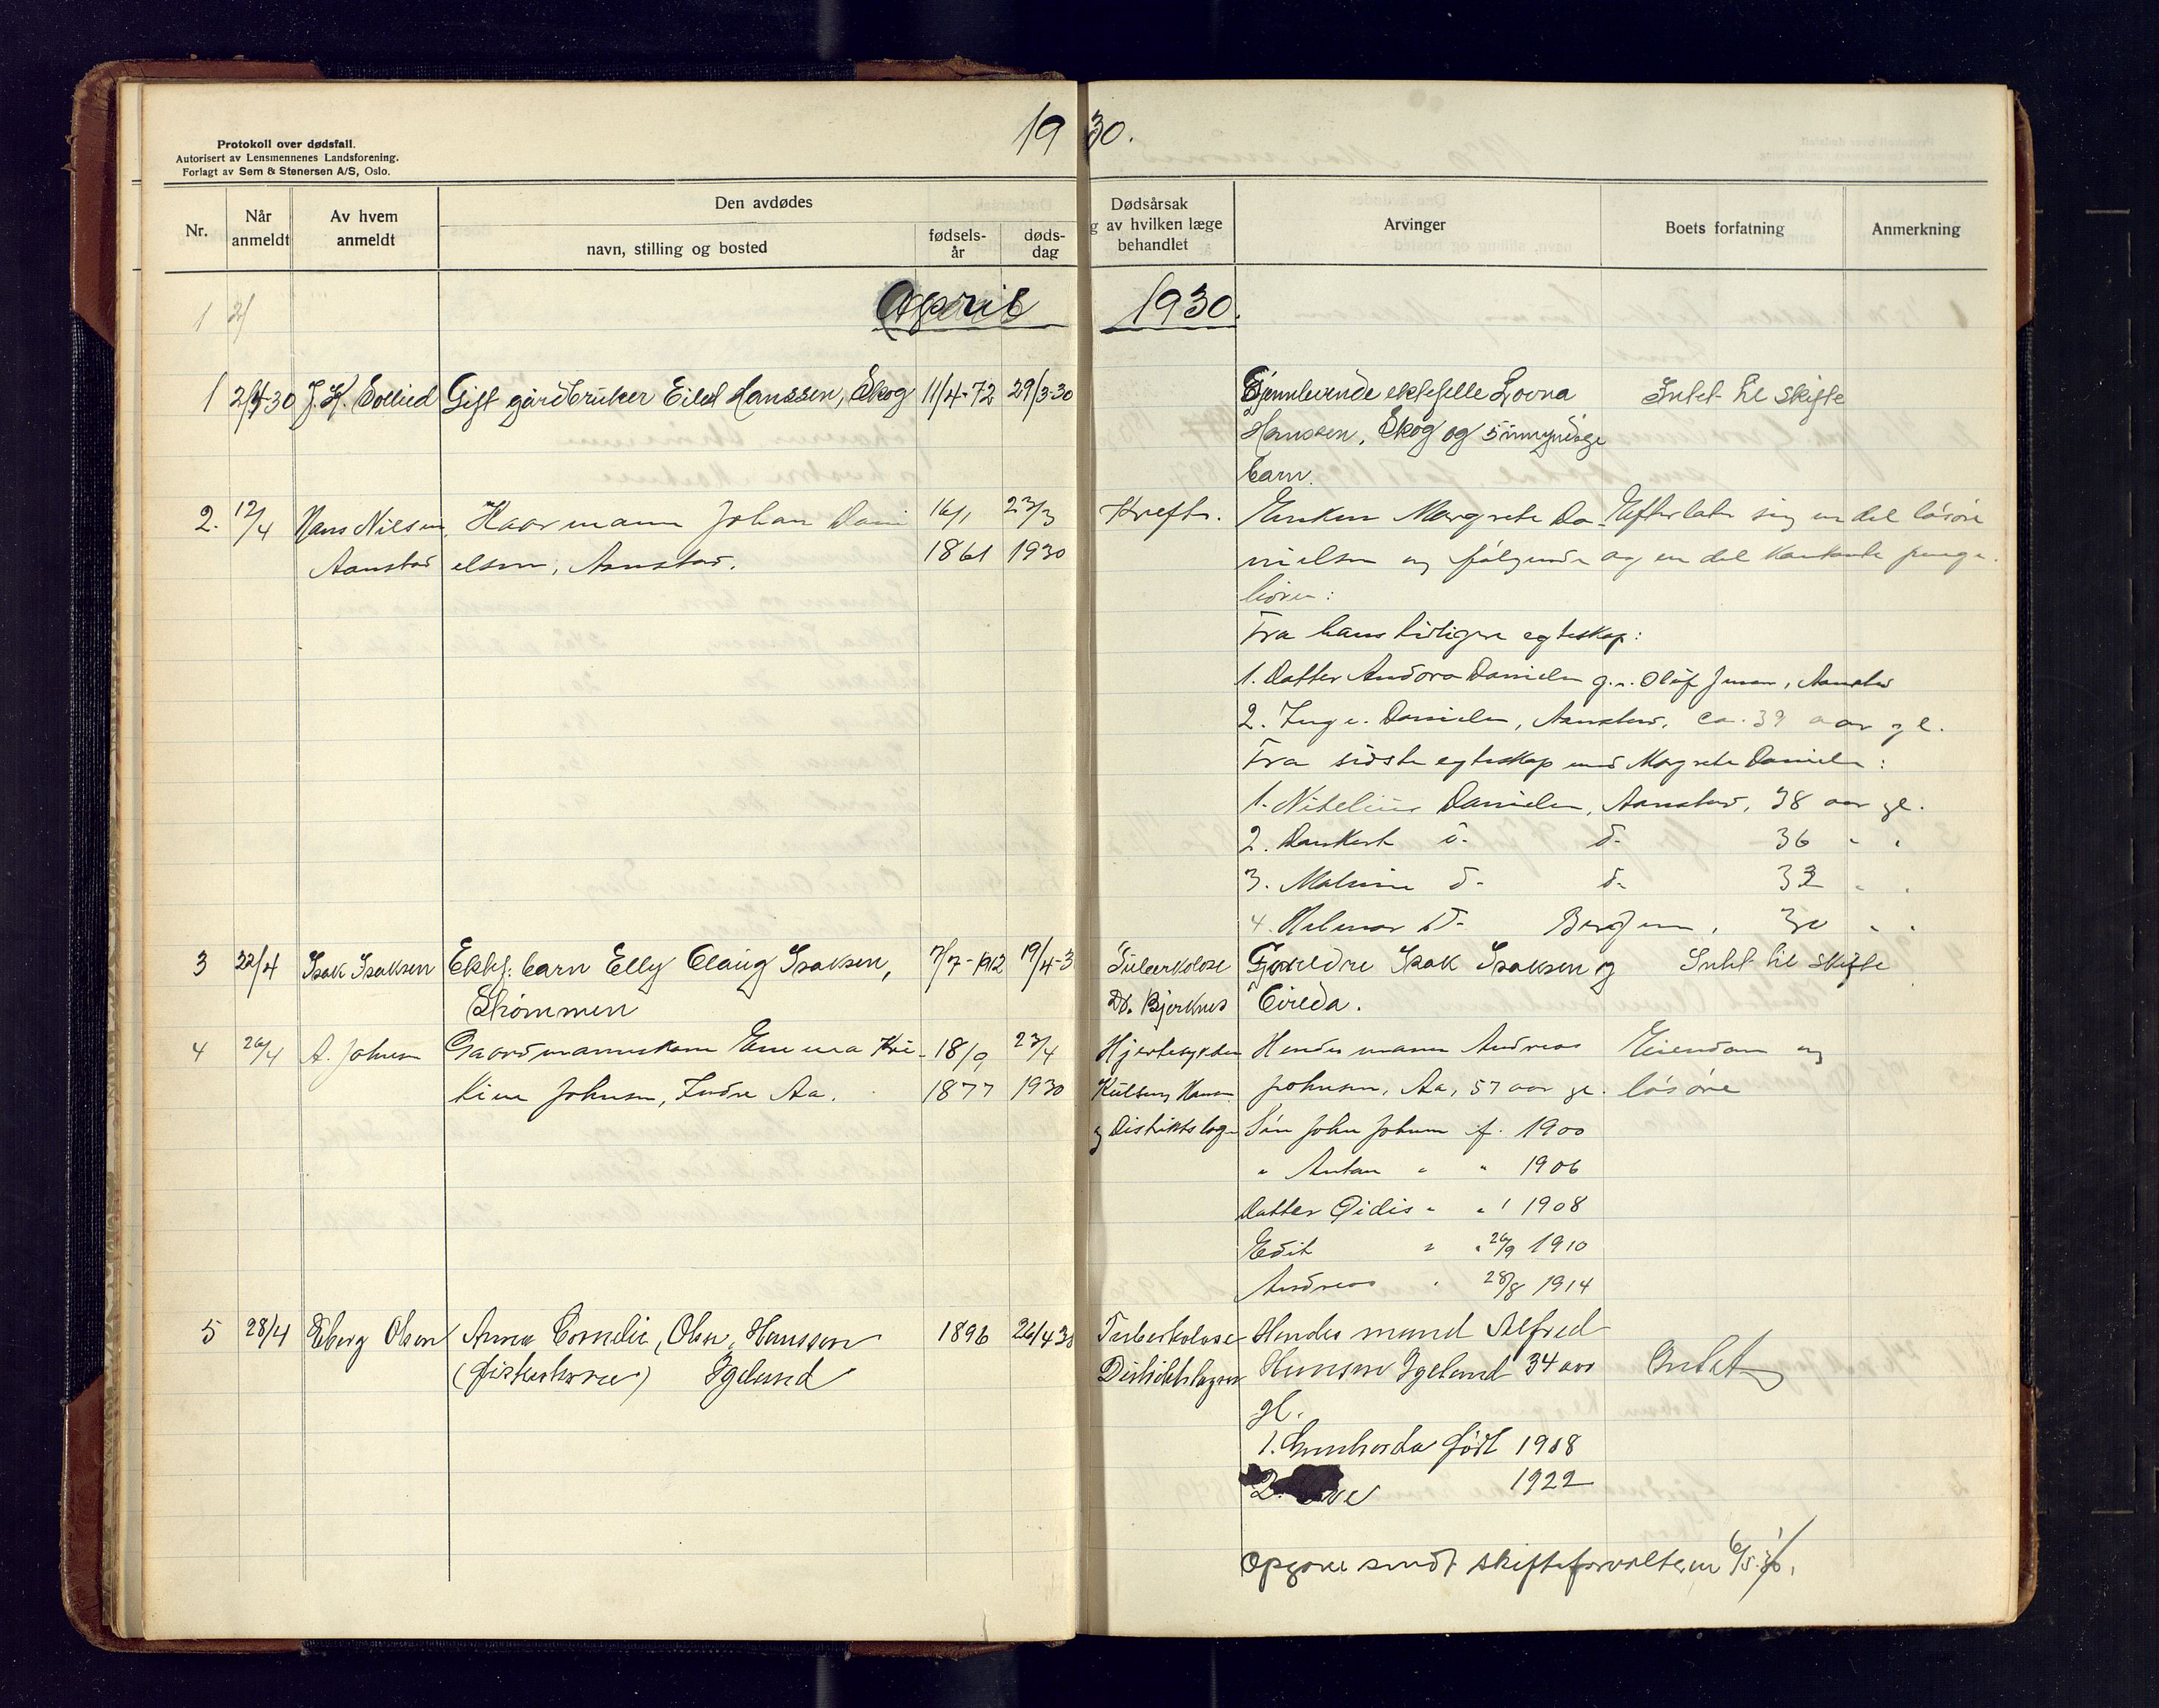 1930.
Protokoll over dødsfall.
Autorisert av Lensmennenes Landsforening.
Forlagt av Sem & Stenersen A/S, Oslo.
Nr.
Når anmeldt
Av hvem anmeldt
Den avdødes
navn, stilling og bosted
fødsels-år
døds-dag
Dødsårsak
g av hvilken læge
behandlet
Arvinger
Boets forfatning
Anmerkning
April 1930.
1 2/
1 2/4-30 J. K. Gift gårdbruker Eilert Hanssen, Skog 11/4-72 29/3-30 Gjenlevende ektefelle Lovna Intet til skifte
Hanssen, Skog og 5 umyndige
barn.
2. 12/4 Hans Nilsen, Kaarmann Johan Dani 16/1 23/3 Kreft. Enken Margrete Da- Efterlater sig en del løsøre
Aanstad elsen, Aanstad. 1861 1930 nielsen og følgende og en del kontante penge.
livsarv:
Fra hans tidligere egteskap:
1. Datter Andora Danielsen g.m. Oluf Jensen, Aanstad
2. Inge Danielsen, Aanstad, ca. 39 aar gl.
Fra sidste egteskap med Margrete Danielsen:
1. Danielsen, Aanstad, 38 aar gl.
2. Dankert d. d. 36 " "
3. Malvine d. d. 32 " "
4. Hilmar D. Bergen, 30 " "
3 22/4 Isak Isaksen Ektf. barn Elly Olaug Isaksen, 7/7-1912 19/4-3 Tuberkolose Foreldre Isak Isaksen og Intet til skifte
Strømmen Dr. Bjerknes
4 26/4 A. Johnsen Gaardmannskone Emma Kris- 18/9 23/4 Hjertesykdom Hendes mann Andreas Eiendom og
tine Johnsen, Indre Aa. 1877 1930 Johnsen, Aa, 57 aar gl. løsøre
og Distriktslæge Søn John Johnsen f. 1900
" Anton " " 1906
Datter Gidis " " 1908
Edit " " 26/9 1910
Andreas " 28/8 1914
5 28/4 Eberg Olsen Anna Cornelie, Olsen, Hanssen 1896 26/4 30 Tuberkolose Hendes mand Alfred
(fiskerkone) Igelund Distriktslægen Hansen Igelund 34 aar Intet
gl.
1. født 1918
2. 1922
Opgave sendt skifteforvalteren 6/5.30.